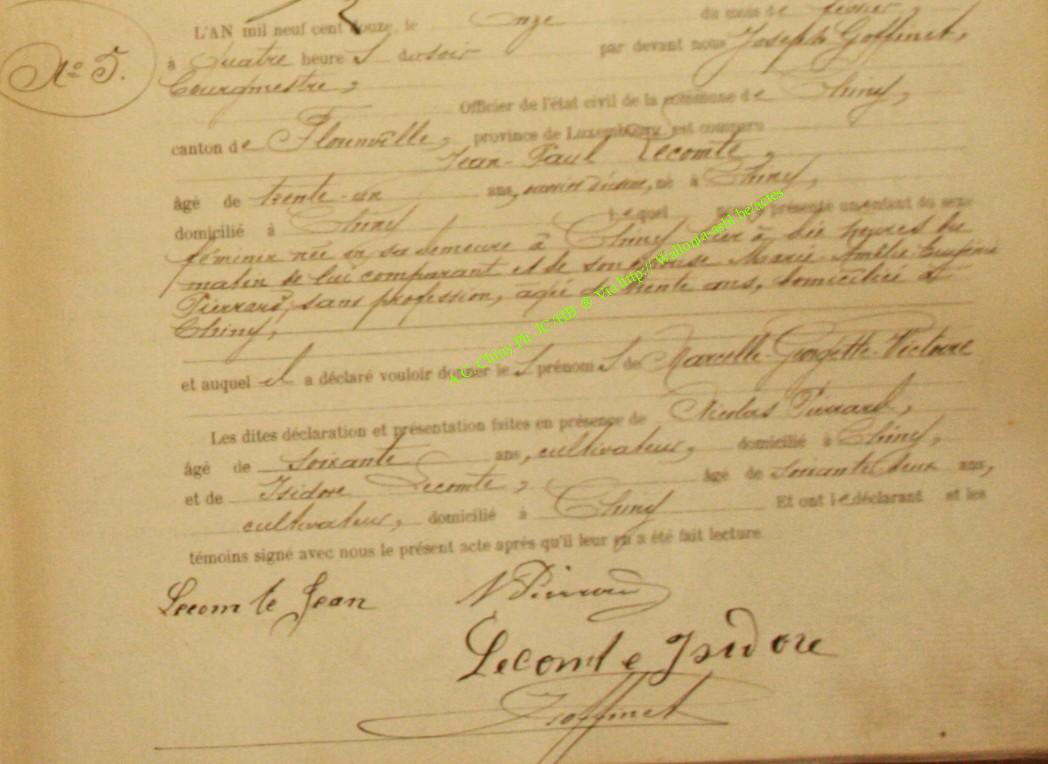 L'AN mil neuf cent douze, le Onze du mois de février,
No 5.
à Quatre heures du soir par devant nous Joseph Goffinet,
Bourgmestre,
Officier de l'état civil de la commune de Chiny,
canton de Florenville, province de Luxembourg est comparu
Jean-Paul Lecomte,
âgé de trente-un ans, ouvrier d'usine, né à Chiny,
domicilié à Chiny lequel nous a présenté un enfant du sexe
féminin née en sa demeure à Chiny hier à dix heures du
matin de lui comparant et de son épouse Marie-Amélie-Eugénie
Pierrard, sans profession, agée de trente ans, domiciliée à
Chiny,
A.C. Chiny Ph. JC-HB @ Via http:// Wallonia-asbl be/actes
et auquel il a déclaré vouloir donner les prénoms de Marcelle-Georgette-Victoire
Les dites déclaration et présentation faites en présence de Nicolas Pierrard,
âgé de soixante ans, cultivateur, domicilié à Chiny,
et de Isidore Lecomte, âgé de soixante deux ans,
cultivateur, domicilié à Chiny Et ont le déclarant et les
témoins signé avec nous le présent acte après qu'il leur en a été fait lecture.
Lecomte Jean N Pierrard
Lecomte Isidore
J Goffinet